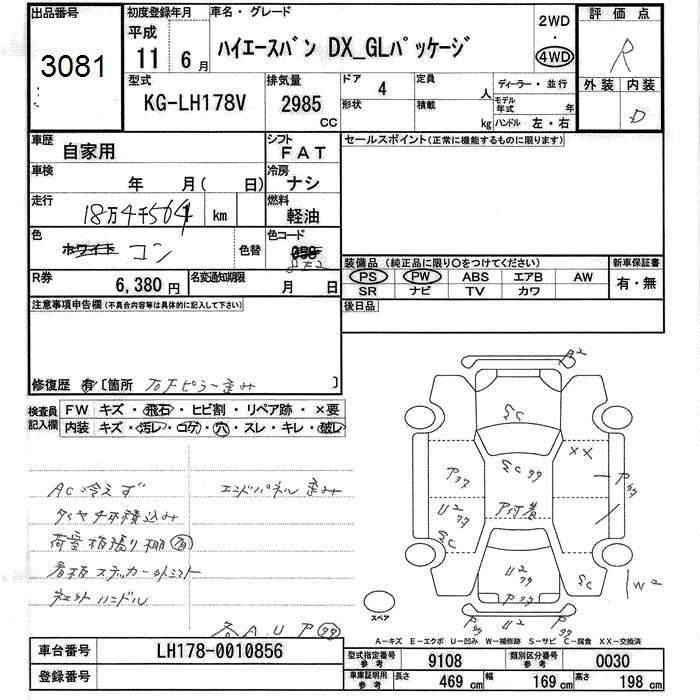 出品番号
3081
初度登録年月
平成
11年 6月
車名・グレード
ハイエースバン DX_GLパッケージ
2WD
・
4WD
評価点
R
外装 内装
D
型式
KG-LH178V
排気量
2985
CC
ドア
4
形状
定員
人
積載
kg
ディーラー・並行
モデル年式
年
ハンドル 左・右
車歴
自家用
シフト
FAT
セールスポイント(正常に機能するものに限ります)
車検
年 月( 日)
冷房
ナシ
走行
18万4千564
km
燃料
軽油
色
ホワイト コン
色替
色カラーコード
058
8F2
R券
6,380 円
名変通知期限
月 日
装備品(純正品に限り○をつけてください)
PS PW ABS エアB AW
SR ナビ TV カワ
新車保証書
有・無
注意事項申告欄(不具合内容等は具体的に記入して下さい)
後日品
修復歴 有 [箇所 右Fピラー歪み ]
検査員記入欄
FW キズ・飛石・ヒビ割・リペア跡・×要
内装 キズ・汚レ・コゲ・穴・スレ・キレ・破レ
AC冷えず
エンドパネル歪み
タイヤ4本積込み
荷室板張り棚有
看板ステッカー
ハンドル
各A.U P
A2
SC
SC
XX
U2
P付着
SC
U2
P
SC
W2
U2
スペア
A-キズ E-エクボ U-凹み W-補修跡 S-サビ C-腐食 XX-交換済
車台番号
LH178-0010856
登録番号
型式指定番号
参考
9108
類別区分番号
参考
0030
車庫証明用
参考
長さ
469 cm
幅
169 cm
高さ
198 cm